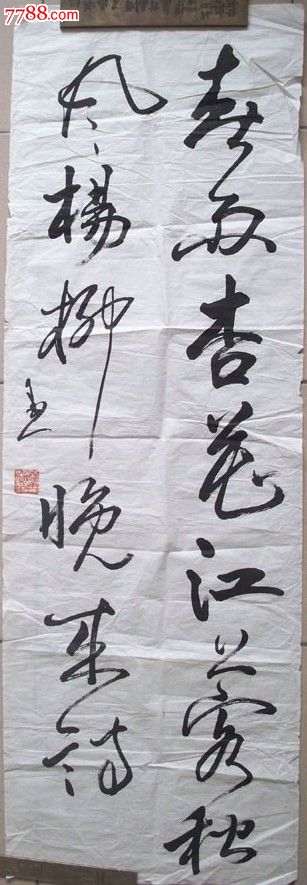 7788.com
春雨杏花江上客秋
风杨柳晚来诗